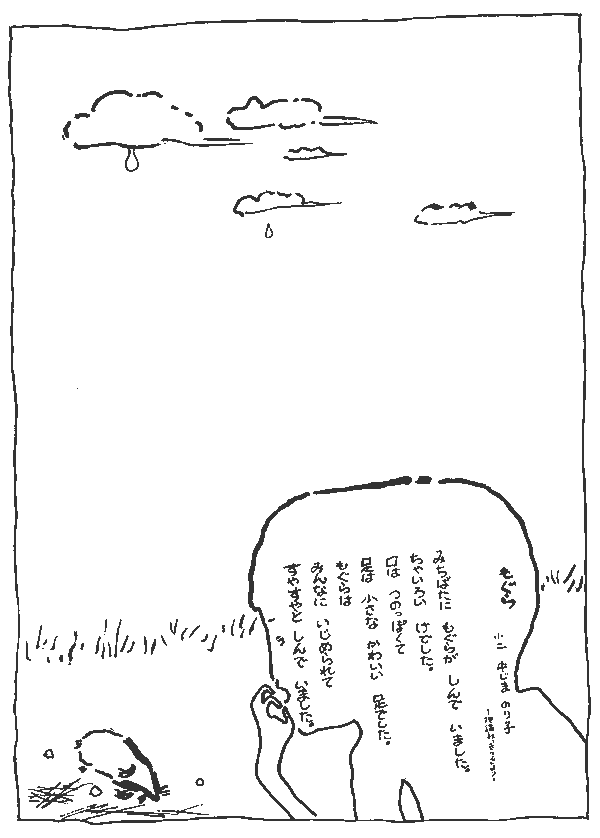 もぐら
小二 中じま のり子
みちばたに もぐらが しんで いました。
ちゃいろい けでした。
口は つのっぽくて
足は 小さな かわいい 足でした。
もぐらは
みんなに いじめられて
すやすやと しんで いました。